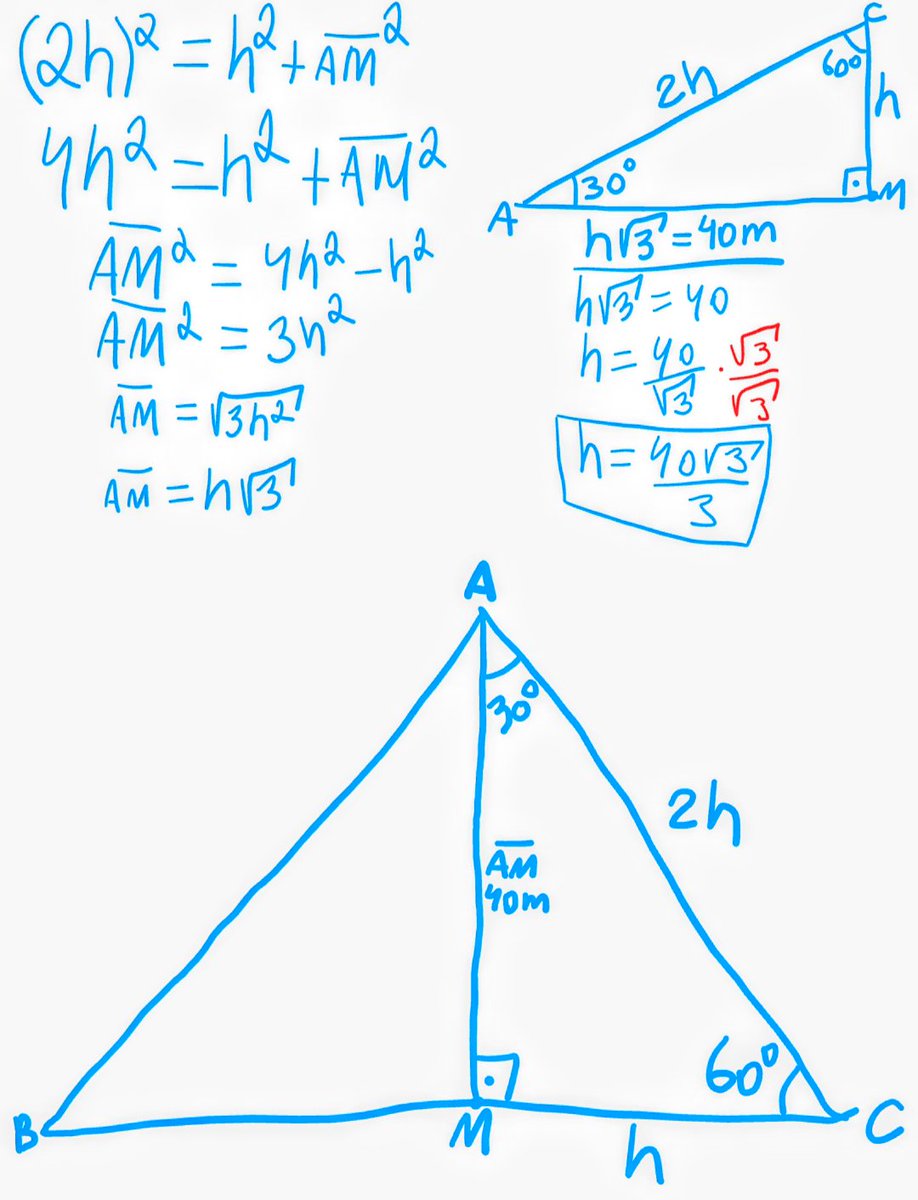 (2h)² = h² + A̅M̅²
4h² = h² + A̅M̅²
A̅M̅² = 4h² – h²
A̅M̅² = 3h²
A̅M̅ = √3h²
A̅M̅ = h√3
C
60°
2h
h
30°
A
M
h√3 = 40m
h√3 = 40
h = 40/√3 · √3/√3
h = 40√3/3
A
30°
2h
A̅M̅
40m
60°
B
M
C
h